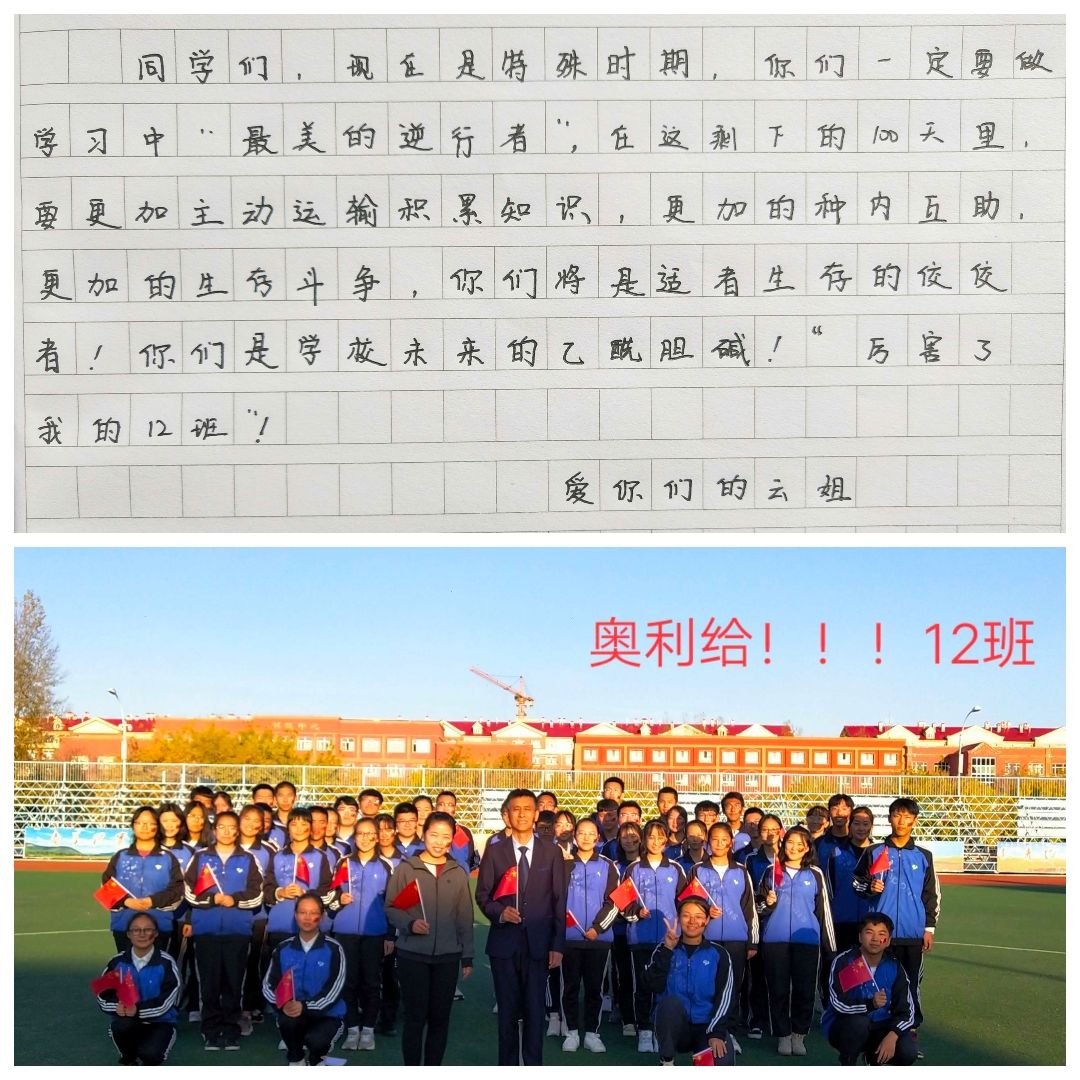 同学们，现在是特殊时期，你们一定要做
学习中“最美的逆行者”，在这剩下的100天里，
要更加主动运输积累知识，更加的种内互助，
更加的生存斗争，你们将是适者生存的佼佼
者！你们是学校未来的乙酰胆碱！“厉害了
我的12班”！
爱你们的云姐
奥利给！！！12班